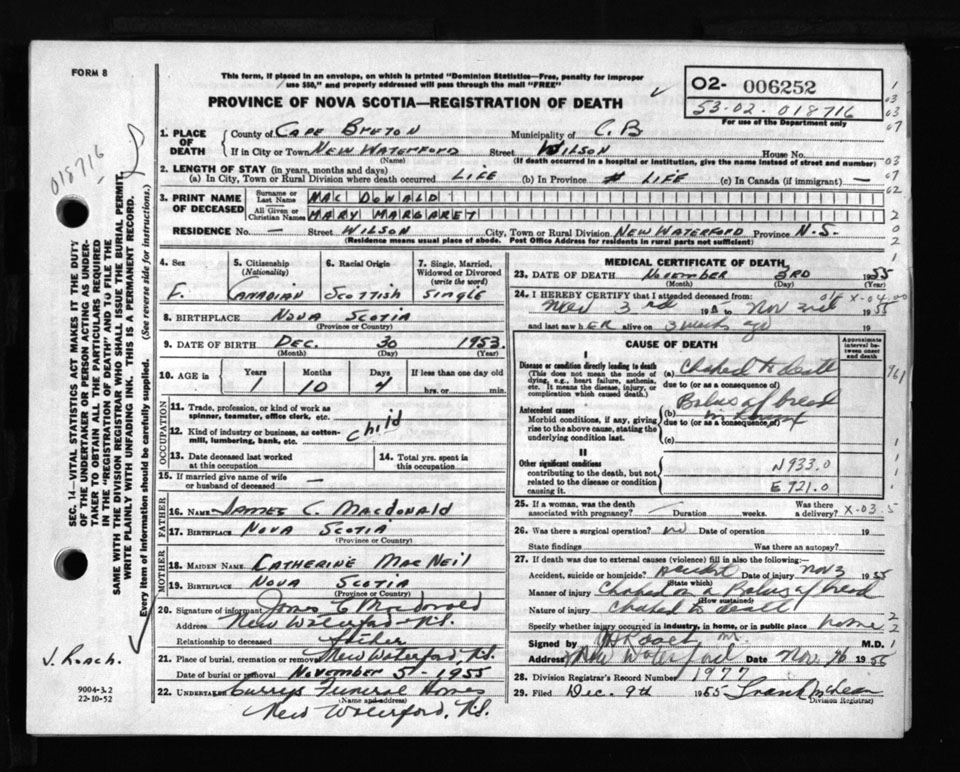 FORM 8
This form, if placed in an envelope, on which is printed "Dominion Statistics—Free, penalty for improper
use $50," and properly addressed will pass through the mail "FREE"
PROVINCE OF NOVA SCOTIA—REGISTRATION OF DEATH
02- 006252
53-02-018716
For use of the Department only
018716
SEC. 14—VITAL STATISTICS ACT MAKES IT THE DUTY
OF THE UNDERTAKER OR PERSON ACTING AS UNDER-
TAKER TO OBTAIN ALL THE PARTICULARS REQUIRED
IN THE "REGISTRATION OF DEATH" AND TO FILE THE
SAME WITH THE DIVISION REGISTRAR WHO SHALL ISSUE THE BURIAL PERMIT.
WRITE PLAINLY WITH UNFADING INK. THIS IS A PERMANENT RECORD.
Every item of information should be carefully supplied. (See reverse side for instructions.)
1. PLACE OF DEATH County of CAPE BRETON Municipality of C.B
If in City or Town NEW WATERFORD Street WILSON House No.
(Name) (If death occurred in a hospital or institution, give the name instead of street and number)
2. LENGTH OF STAY (in years, months and days)
(a) In City, Town or Rural Division where death occurred LIFE (b) In Province LIFE (c) In Canada (if immigrant) —
3. PRINT NAME OF DECEASED
Surname or Last Name MAC DONALD
All Given or Christian Names MARY MARGARET
RESIDENCE No. — Street WILSON City, Town or Rural Division NEW WATERFORD Province N.S.
(Residence means usual place of abode. Post Office Address for residents in rural parts not sufficient)
4. Sex F.
5. Citizenship (Nationality) CANADIAN
6. Racial Origin SCOTTISH
7. Single, Married, Widowed or Divorced (write the word) SINGLE
8. BIRTHPLACE NOVA SCOTIA
(Province or Country)
9. DATE OF BIRTH DEC. 30 1953.
(Month) (Day) (Year)
10. AGE in Years 1 Months 10 Days 4 If less than one day old
hrs. or min.
OCCUPATION
11. Trade, profession, or kind of work as
spinner, teamster, office clerk, etc.
12. Kind of industry or business, as cotton-
mill, lumbering, bank, etc. child
13. Date deceased last worked
at this occupation
14. Total yrs. spent in
this occupation
15. If married give name of wife
or husband of deceased —
FATHER
16. NAME JAMES C. MacDONALD
17. BIRTHPLACE NOVA SCOTIA
(Province or Country)
MOTHER
18. MAIDEN NAME CATHERINE MacNEIL
19. BIRTHPLACE NOVA SCOTIA
(Province or Country)
20. Signature of informant James C Macdonald
Address New Waterford N.S.
Relationship to deceased Father
21. Place of burial, cremation or removal New Waterford, N.S.
Date of burial or removal November 5 1955
22. UNDERTAKER Funeral Homes
(Name and address)
New Waterford, N.S.
J. Roach.
9004-3.2
22-10-52
MEDICAL CERTIFICATE OF DEATH
23. DATE OF DEATH NOVEMBER 3RD 1955
(Month) (Day) (Year)
24. I HEREBY CERTIFY that I attended deceased from
Nov 3rd 195 to Nov 3rd 1955
and last saw hER alive on 3 weeks ago 19
CAUSE OF DEATH
Approximate interval between onset and death
I
Disease or condition directly leading to death
(This does not mean the mode of
dying, e.g., heart failure, asthenia,
etc. It means the disease, injury, or
complication which caused death.)
(a) Choked to death
due to (or as a consequence of)
Bolus of bread
Antecedent causes
Morbid conditions, if any, giving
rise to the above cause, stating the
underlying condition last.
(b)
due to (or as a consequence of)
(c)
II
Other significant conditions
contributing to the death, but not
related to the disease or condition
causing it.
N933.0
E921.0
25. If a woman, was the death
associated with pregnancy? Duration weeks. Was there
a delivery? X-03.5
26. Was there a surgical operation? no Date of operation 19
State findings Was there an autopsy?
27. If death due to external causes (violence) fill in also the following:
Accident, suicide or homicide? Accident Date of injury Nov 3 1955
(State which)
Manner of injury Choked on a Bolus of bread
(How sustained)
Nature of injury choked to death
Specify whether injury occurred in industry, in home, or in public place home
Signed by Roach M.D.
Address New Waterford Date Nov. 1955
28. Division Registrar's Record Number 1977
29. Filed Dec. 9th 1955 Frank McLean
Division Registrar